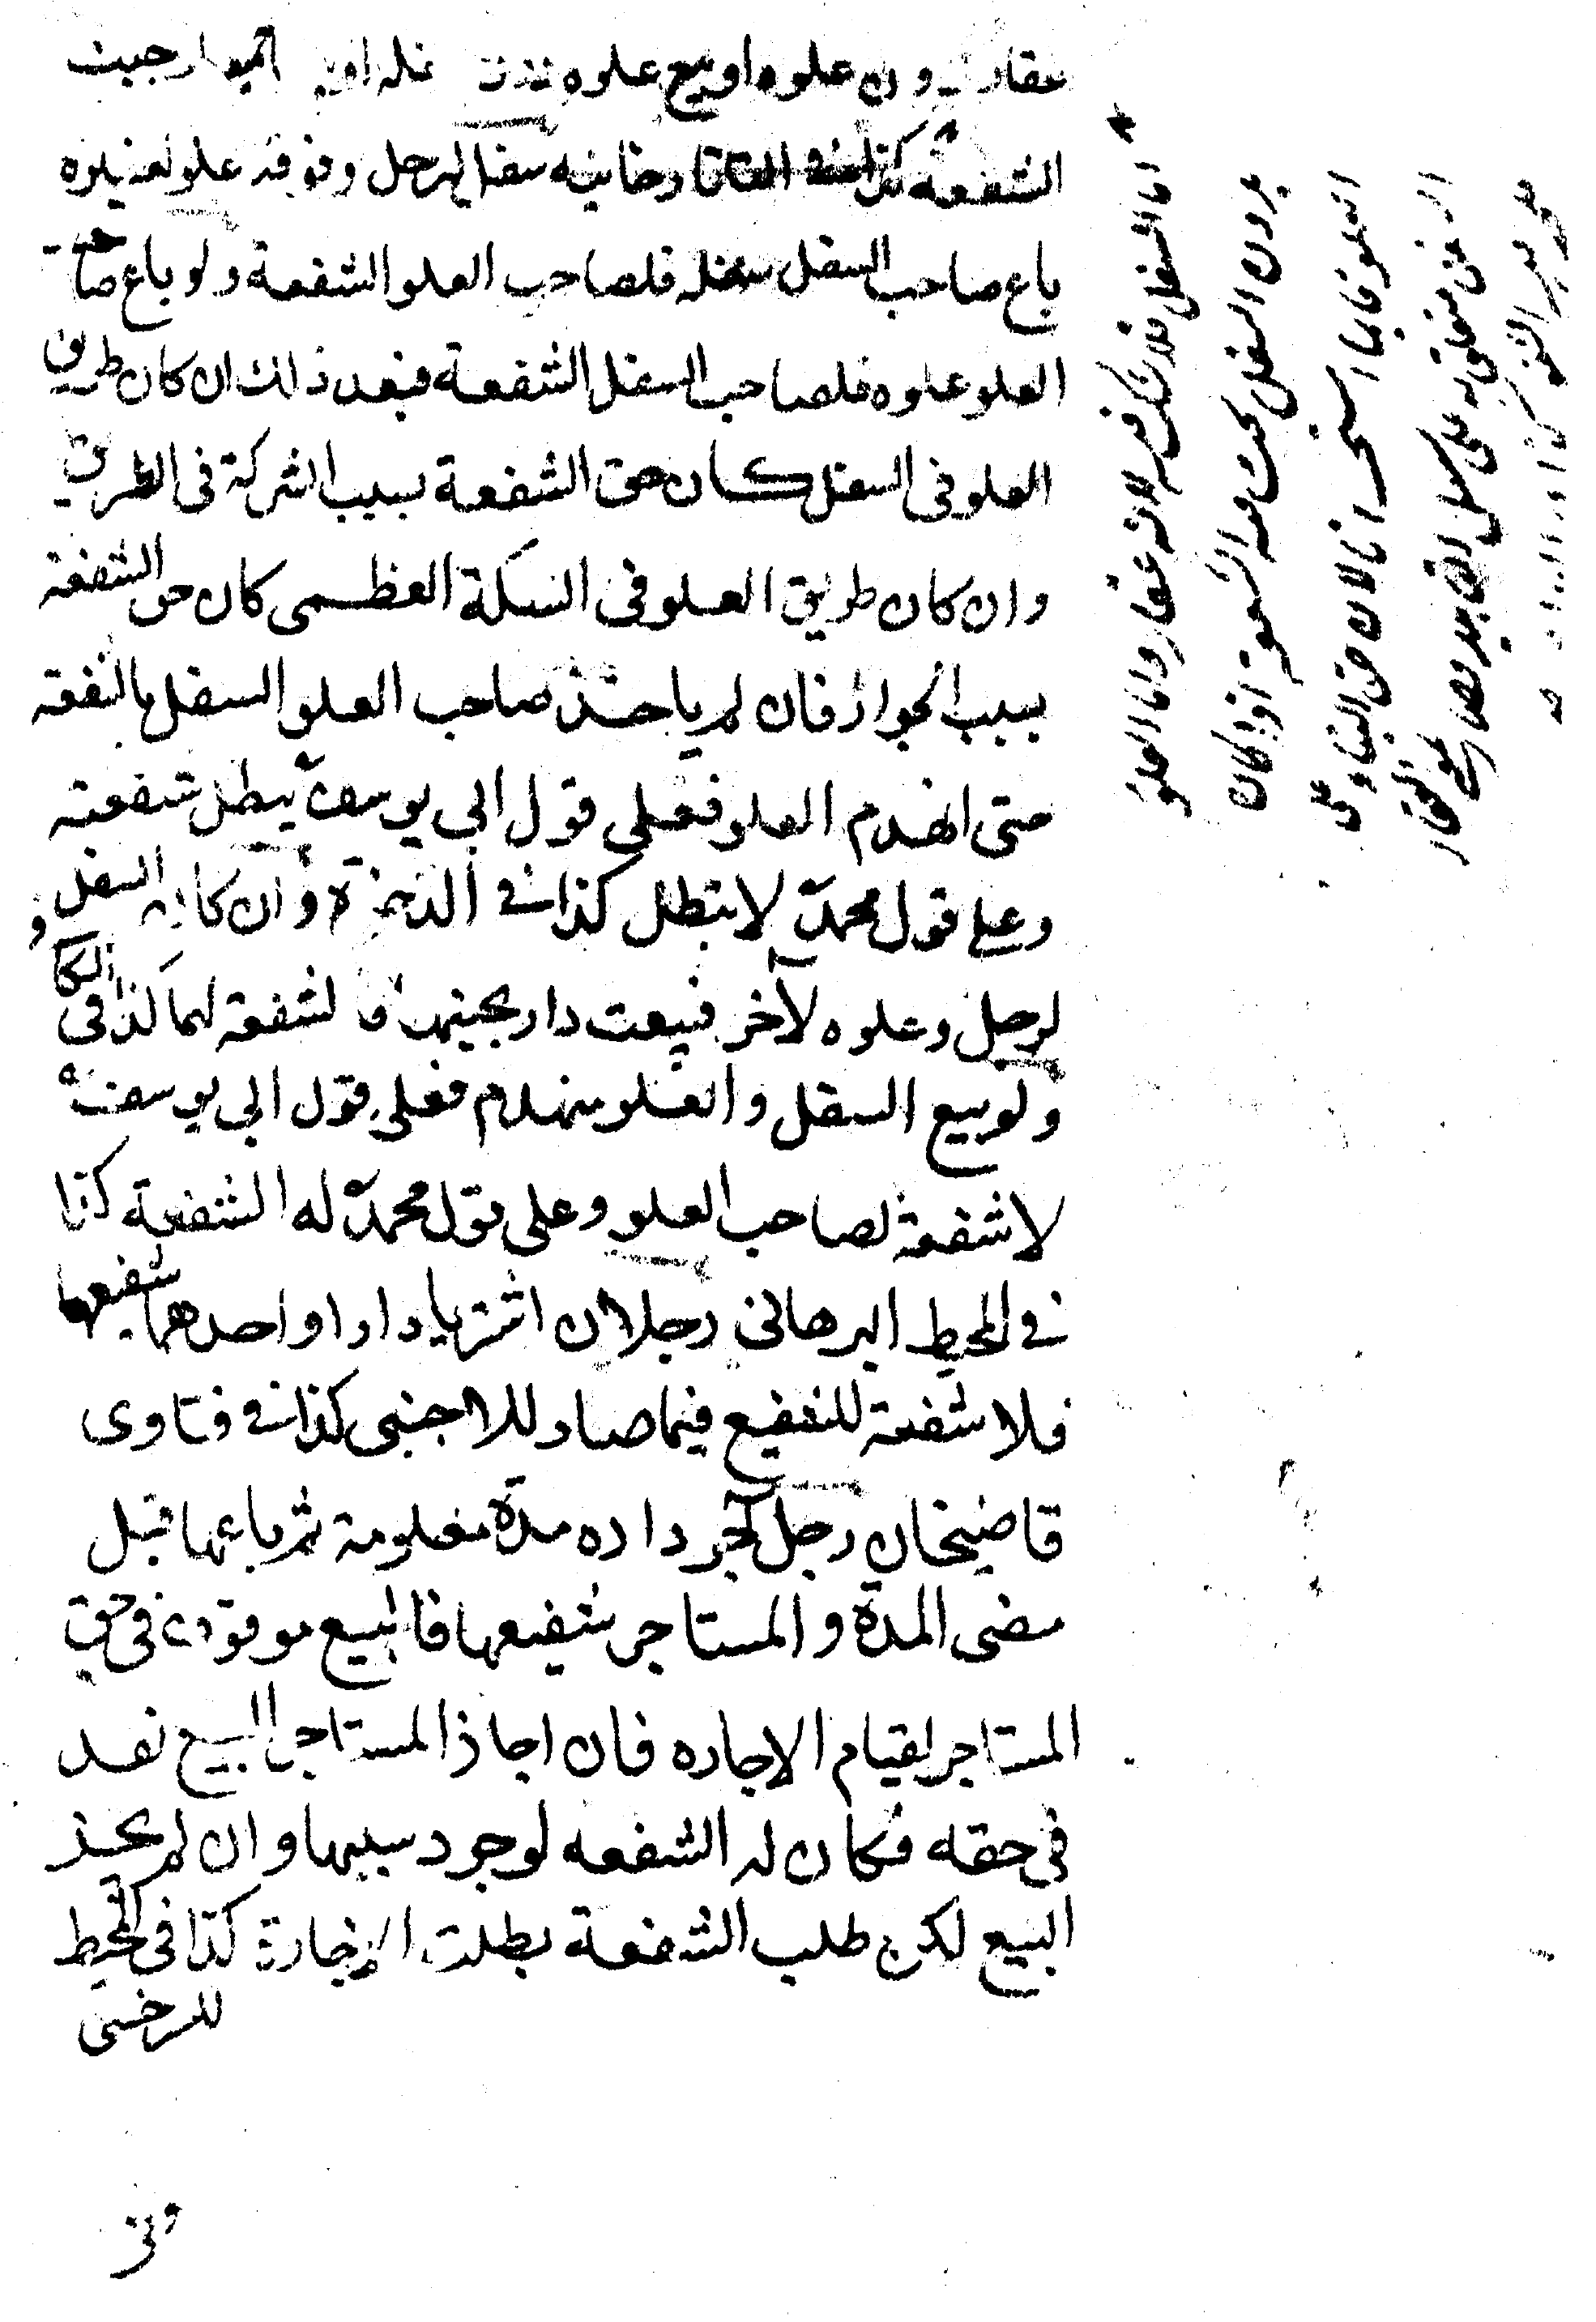 عقار دون علوه او بيع علوه دون سفله او بيعا جميعا وجبت
الشفعة كذا في التاتارخانيه سفل لرجل وفوقه علو لغيره
باع صاحب السفل سفله فلصاحب العلو الشفعة ولو باع صاحب
العلو علوه فلصاحب السفل الشفعة فبعد ذلك ان كان طريق
العلو في السفل كان حق الشفعة بسبب الشركة في الطريق
وان كان طريق العلو في السكة العظمى كان حق الشفعة
بسبب الجوار فان لم ياخذ صاحب العلو السفل بالشفعة
حتى انهدم العلو فعلى قول ابي يوسف يبطل شفعته
وعلى قول محمد لا تبطل كذا في الذخيرة وان كان السفل
لرجل وعلوه لآخر فبيعت دار بجنبهما فالشفعة لهما كذا في الكافي
ولو بيع السفل والعلو منهدم فعلى قول ابي يوسف
لا شفعة لصاحب العلو وعلى قول محمد له الشفعة كذا
في المحيط البرهاني رجلان اشتريا دارا واحدهما شفيعها
فلا شفعة للشفيع فيما صار للاجنبي كذا في فتاوى
قاضيخان رجل آجر داره مدة معلومة ثم باعها قبل
مضى المدة والمستاجر شفيعها فالبيع موقوف في حق
المستاجر لقيام الاجاره فان اجاز المستاجر البيع نفذ
في حقه فكان له الشفعه لوجود سببها وان لم يجز
البيع لكن طلب الشفعة بطلت الاجارة كذا في المحيط
للسرخسى
اما السفل فلا شك فيه لانه عقار واما العلو
بدون السفل يجب فيه الشفعة اذا كان
العلو قائما استحسانا لان حق البناء على
متعلق به على سبيل التأبيد فصار